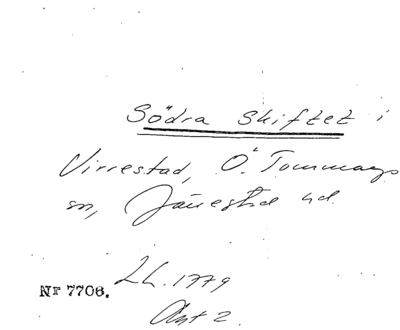 Södra Skiftet i
Virrestad, Ö. Tommarps
sn, Järrestad hd.
LL. 1779
Nr 7708.
Akt 2.